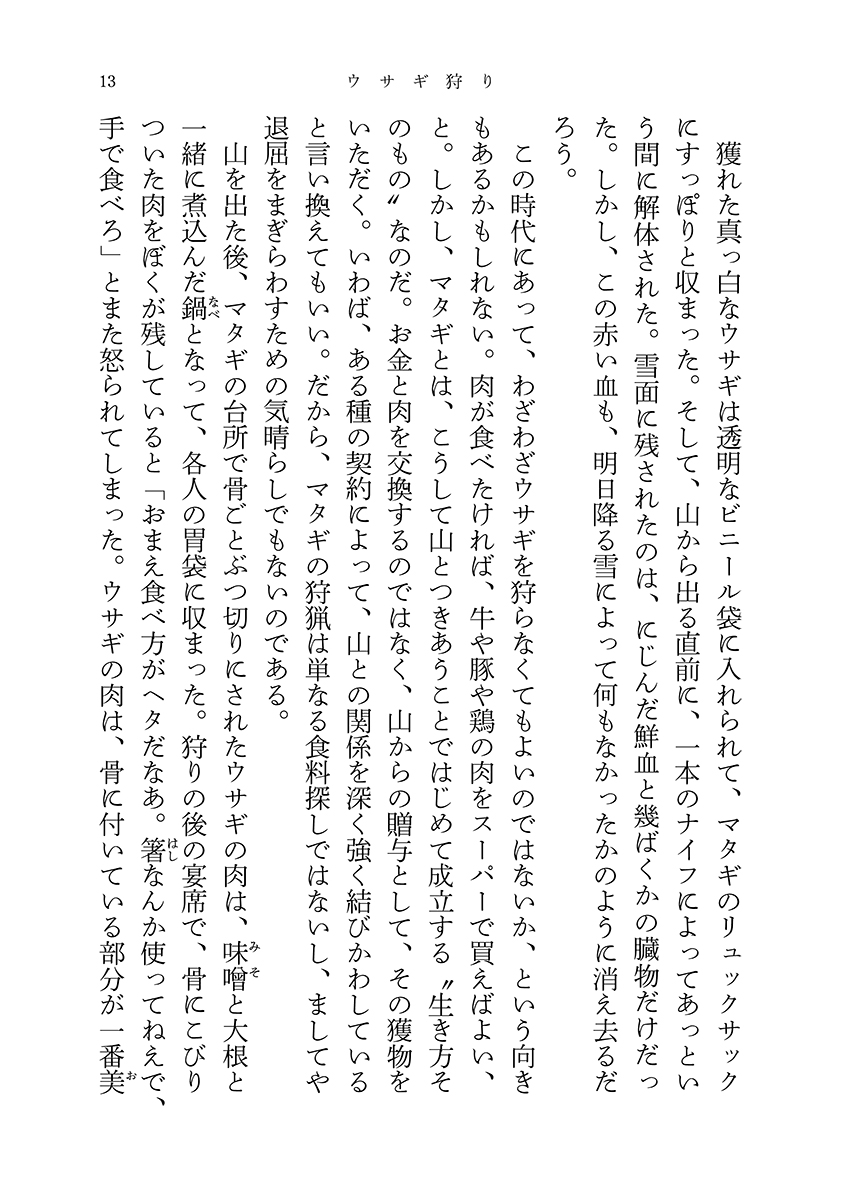 13
ウサギ狩り
獲れた真っ白なウサギは透明なビニール袋に入れられて、マタギのリュックサック
にすっぽりと収まった。そして、山から出る直前に、一本のナイフによってあっとい
う間に解体された。雪面に残されたのは、にじんだ鮮血と幾ばくかの臓物だけだっ
た。しかし、この赤い血も、明日降る雪によって何もなかったかのように消え去るだ
ろう。
この時代にあって、わざわざウサギを狩らなくてもよいのではないか、という向き
もあるかもしれない。肉が食べたければ、牛や豚や鶏の肉をスーパーで買えばよい、
と。しかし、マタギとは、こうして山とつきあうことではじめて成立する〝生き方そ
のもの〟なのだ。お金と肉を交換するのではなく、山からの贈与として、その獲物を
いただく。いわば、ある種の契約によって、山との関係を深く強く結びかわしている
と言い換えてもいい。だから、マタギの狩猟は単なる食料探しではないし、ましてや
退屈をまぎらわすための気晴らしでもないのである。
山を出た後、マタギの台所で骨ごとぶつ切りにされたウサギの肉は、味噌と大根と
一緒に煮込んだ鍋となって、各人の胃袋に収まった。狩りの後の宴席で、骨にこびり
ついた肉をぼくが残していると「おまえ食べ方がヘタだなあ。箸なんか使ってねえで、
手で食べろ」とまた怒られてしまった。ウサギの肉は、骨に付いている部分が一番美